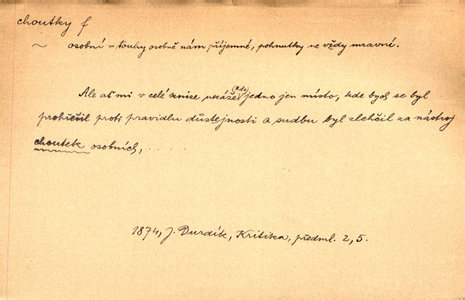 choutky f
~ osobní = touhy osobně nám příjemné, pohnutky ne vždy mravné.
Ale ať mi v celé knize ukážeš kdo jedno jen místo, kde bych se byl
prohřešil proti pravidlu důstojnosti a sudbu byl zlehčil za nástroj
choutek osobních, . . . .
1874, J. Durdík, Kritika, předml. 2, 5.